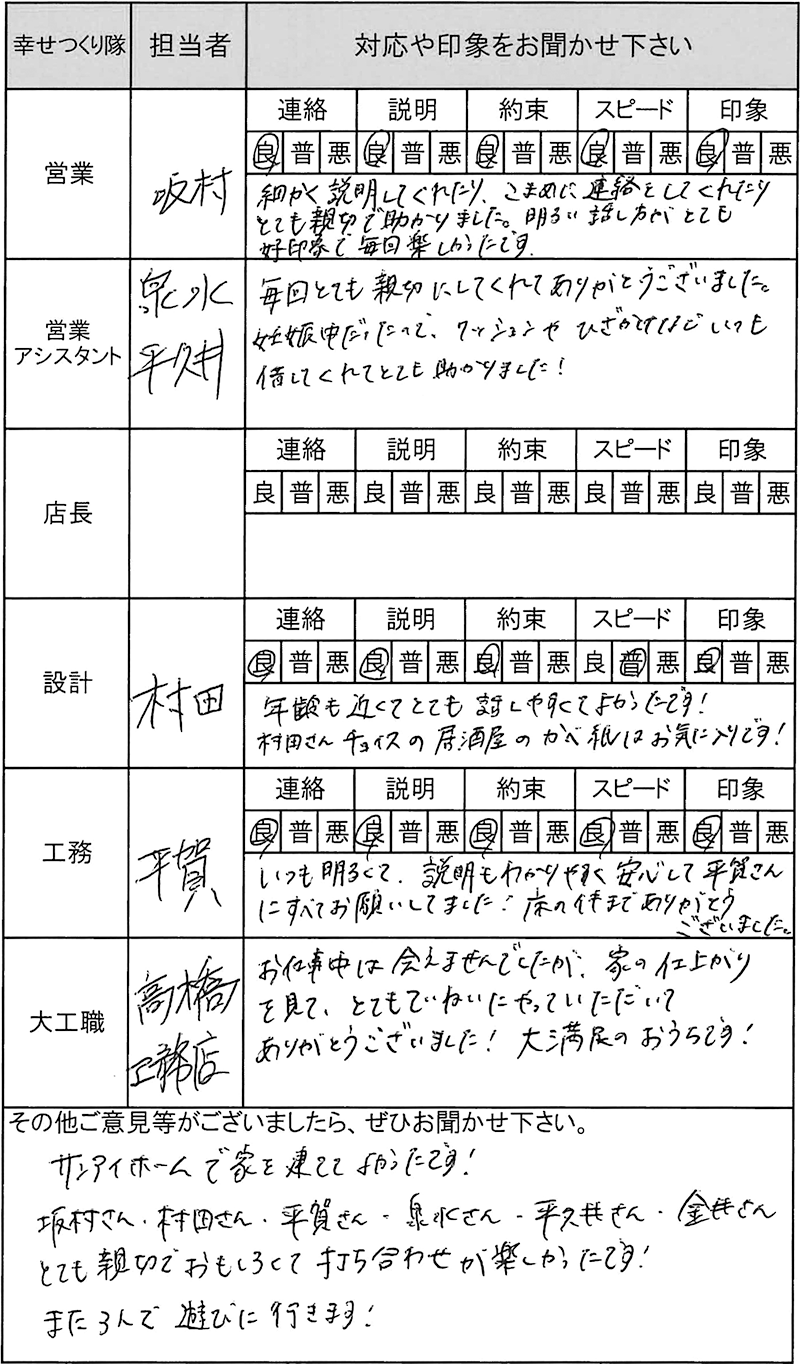 幸せつくり隊 担当者 対応や印象をお聞かせ下さい
営業 坂村
連絡 説明 約束 スピード 印象
良 普 悪 良 普 悪 良 普 悪 良 普 悪 良 普 悪
細かく説明してくれたり、こまめに連絡をしてくれたり
とても親切で助かりました。明るい話し方がとても
好印象で毎回楽しかったです。
営業
アシスタント
泉水
平久井
毎回とても親切にしてくれてありがとうございました。
妊娠中だったので、クッションやひざかけなどいつも
借してくれてとても助かりました!
店長
連絡 説明 約束 スピード 印象
良 普 悪 良 普 悪 良 普 悪 良 普 悪 良 普 悪
設計 村田
連絡 説明 約束 スピード 印象
良 普 悪 良 普 悪 良 普 悪 良 普 悪 良 普 悪
年齢も近くてとても話しやすくてよかったです!
村田さんチョイスの居酒屋のかべ紙はお気に入りです!
工務 平賀
連絡 説明 約束 スピード 印象
良 普 悪 良 普 悪 良 普 悪 良 普 悪 良 普 悪
いつも明るくて、説明もわかりやすく安心して平賀さん
にすべてお願いしてました!床の件までありがとう
ございました。
大工職
高橋
工務店
お仕事中は会えませんでしたが、家の仕上がり
を見て、とてもていねいにやっていただいて
ありがとうございました!大満足のおうちです!
その他ご意見等がございましたら、ぜひお聞かせ下さい。
サンアイホームで家を建ててよかったです!
坂村さん・村田さん・平賀さん・泉水さん・平久井さん・金井さん
とても親切でおもしろくて打ち合わせが楽しかったです!
また3人で遊びに行きます!